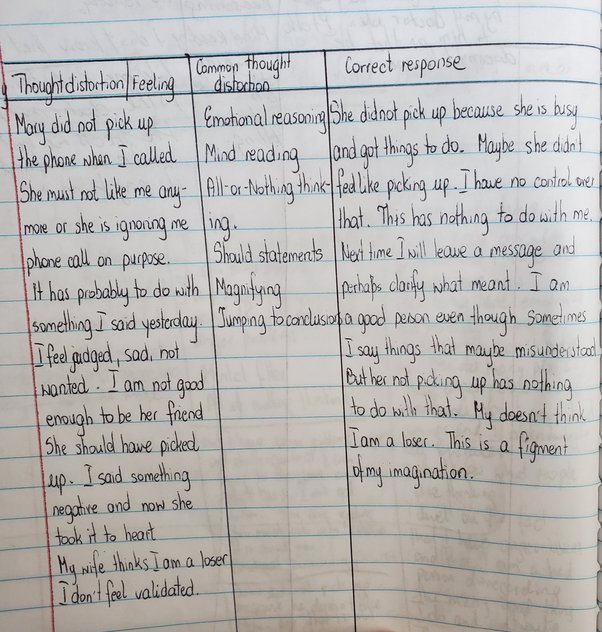 Thought distortion
Feeling
Common thought
distortion
Correct response
Mary did not pick up
the phone when I called
She must not like me any-
more or she is ignoring me
phone call on purpose.
It has probably to do with
something I said yesterday.
I feel judged, sad, not
wanted. I am not good
enough to be her friend
She should have picked
up. I said something
negative and now she
took it to heart
My wife thinks I am a loser
I don't feel validated.
Emotional reasoning
Mind reading
All-or-Nothing think-
ing.
Should statements
Magnifying
Jumping to conclusions
She didnot pick up because she is busy
and got things to do. Maybe she didn't
feel like picking up. I have no control over
that. This has nothing to do with me.
Next time I will leave a message and
perhaps clarify what meant. I am
a good person even though sometimes
I say things that maybe misunderstood
But her not picking up has nothing
to do with that. My doesn't think
I am a loser. This is a figment
of my imagination.